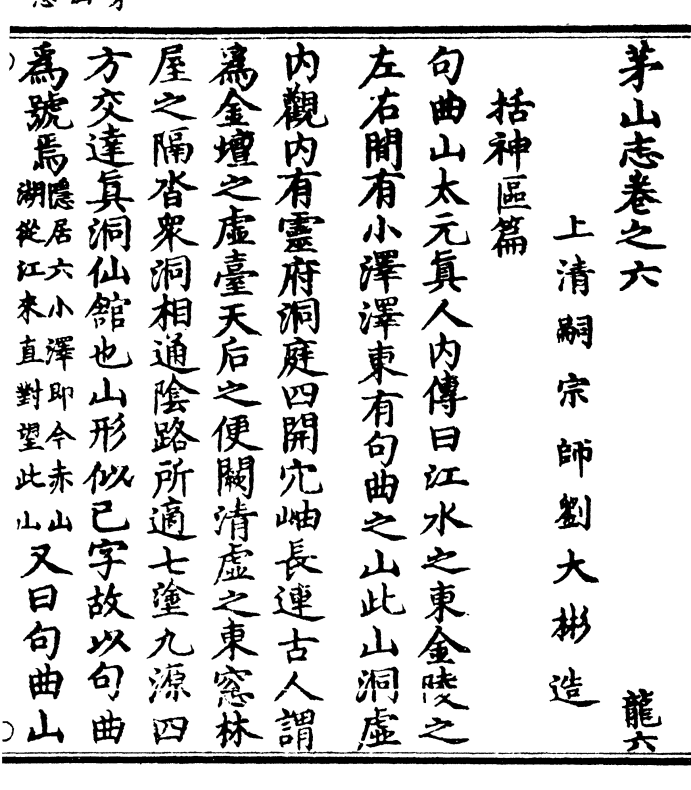 茅山志卷之六 龍六
上清嗣宗師劉大彬造
括神區篇
句曲山太元眞人內傳曰江水之東金陵之
左右間有小澤澤東有句曲之山此山洞虛
內觀內有靈府洞庭四開穴岫長連古人謂
爲金壇之虛臺天后之便闕清虛之東窓林
屋之隔沓衆洞相通陰路所適七塗九源四
方交達眞洞仙舘也山形似已字故以句曲
爲號焉隱居六小澤即今赤山湖從江來直對望此山又曰句曲山